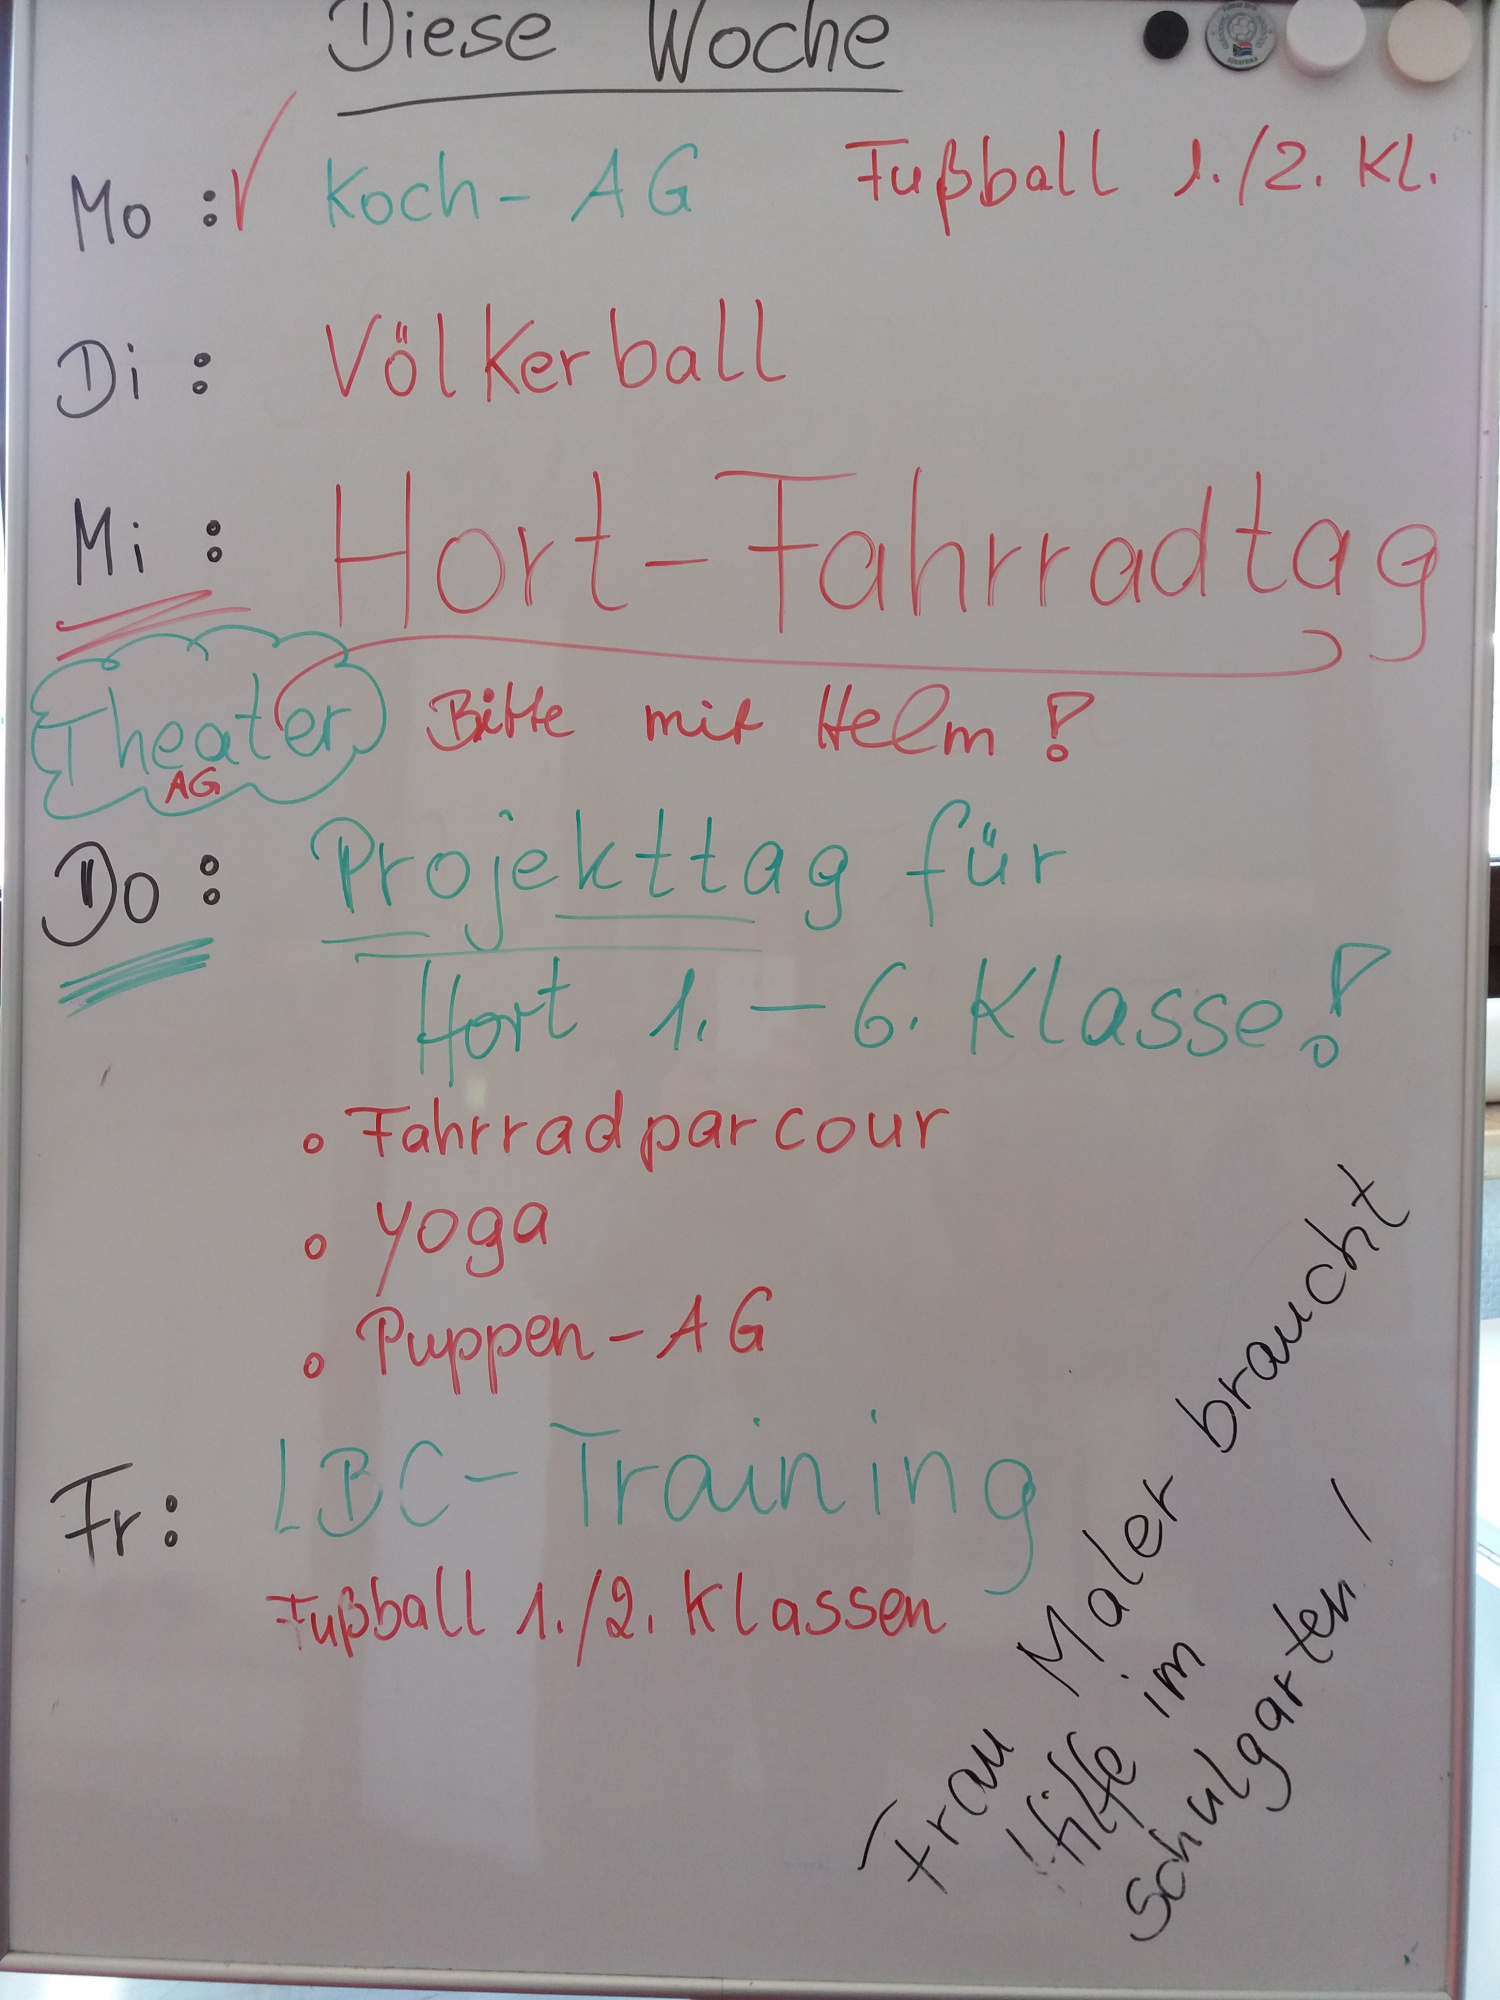 Diese Woche
Mo: Koch-AG Fußball 1./2. Kl.
Di: Völkerball
Mi: Hort-Fahrradtag
Theater AG
Bitte mit Helm!
Do: Projekttag für
Hort 1. – 6. Klasse!
Fahrradparcour
Yoga
Puppen-AG
Fr: LBC-Training
Fußball 1./2. Klassen
Frau Maler braucht
Hilfe im
Schulgarten!